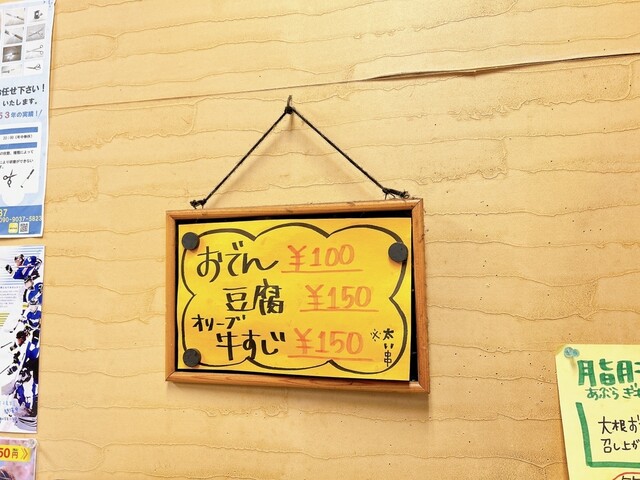 お任せ下さい!
いたします。
53年の実績!
090-9037-5823
おでん ¥100
豆腐 ¥150
オリーブ
牛すじ ¥150
※太い串
50円
あぶらぎ
大根お
召し上が